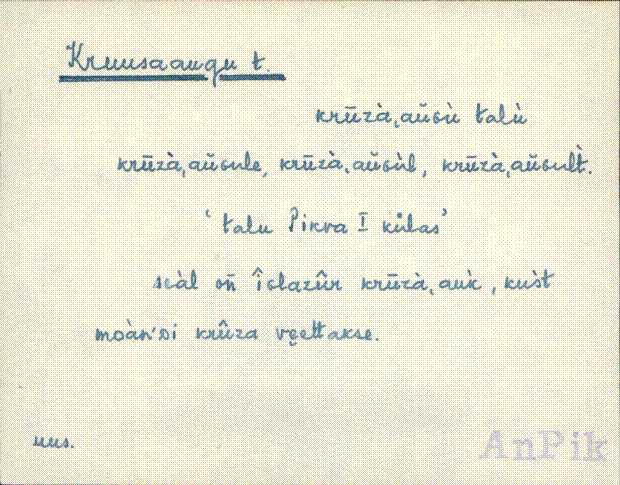 Kruusaaugu t.
krūzà,aŭɢù talù
krūzà,aŭɢule, krūzà,aŭɢùl, krūzà,aŭɢulт̀.
'talu Pikva I külas'
sìàl oñ îɢlazûr krūzà,auk̀, kus̀t
moàn'ɢi krûza vęettakse.
uus.
AnPik